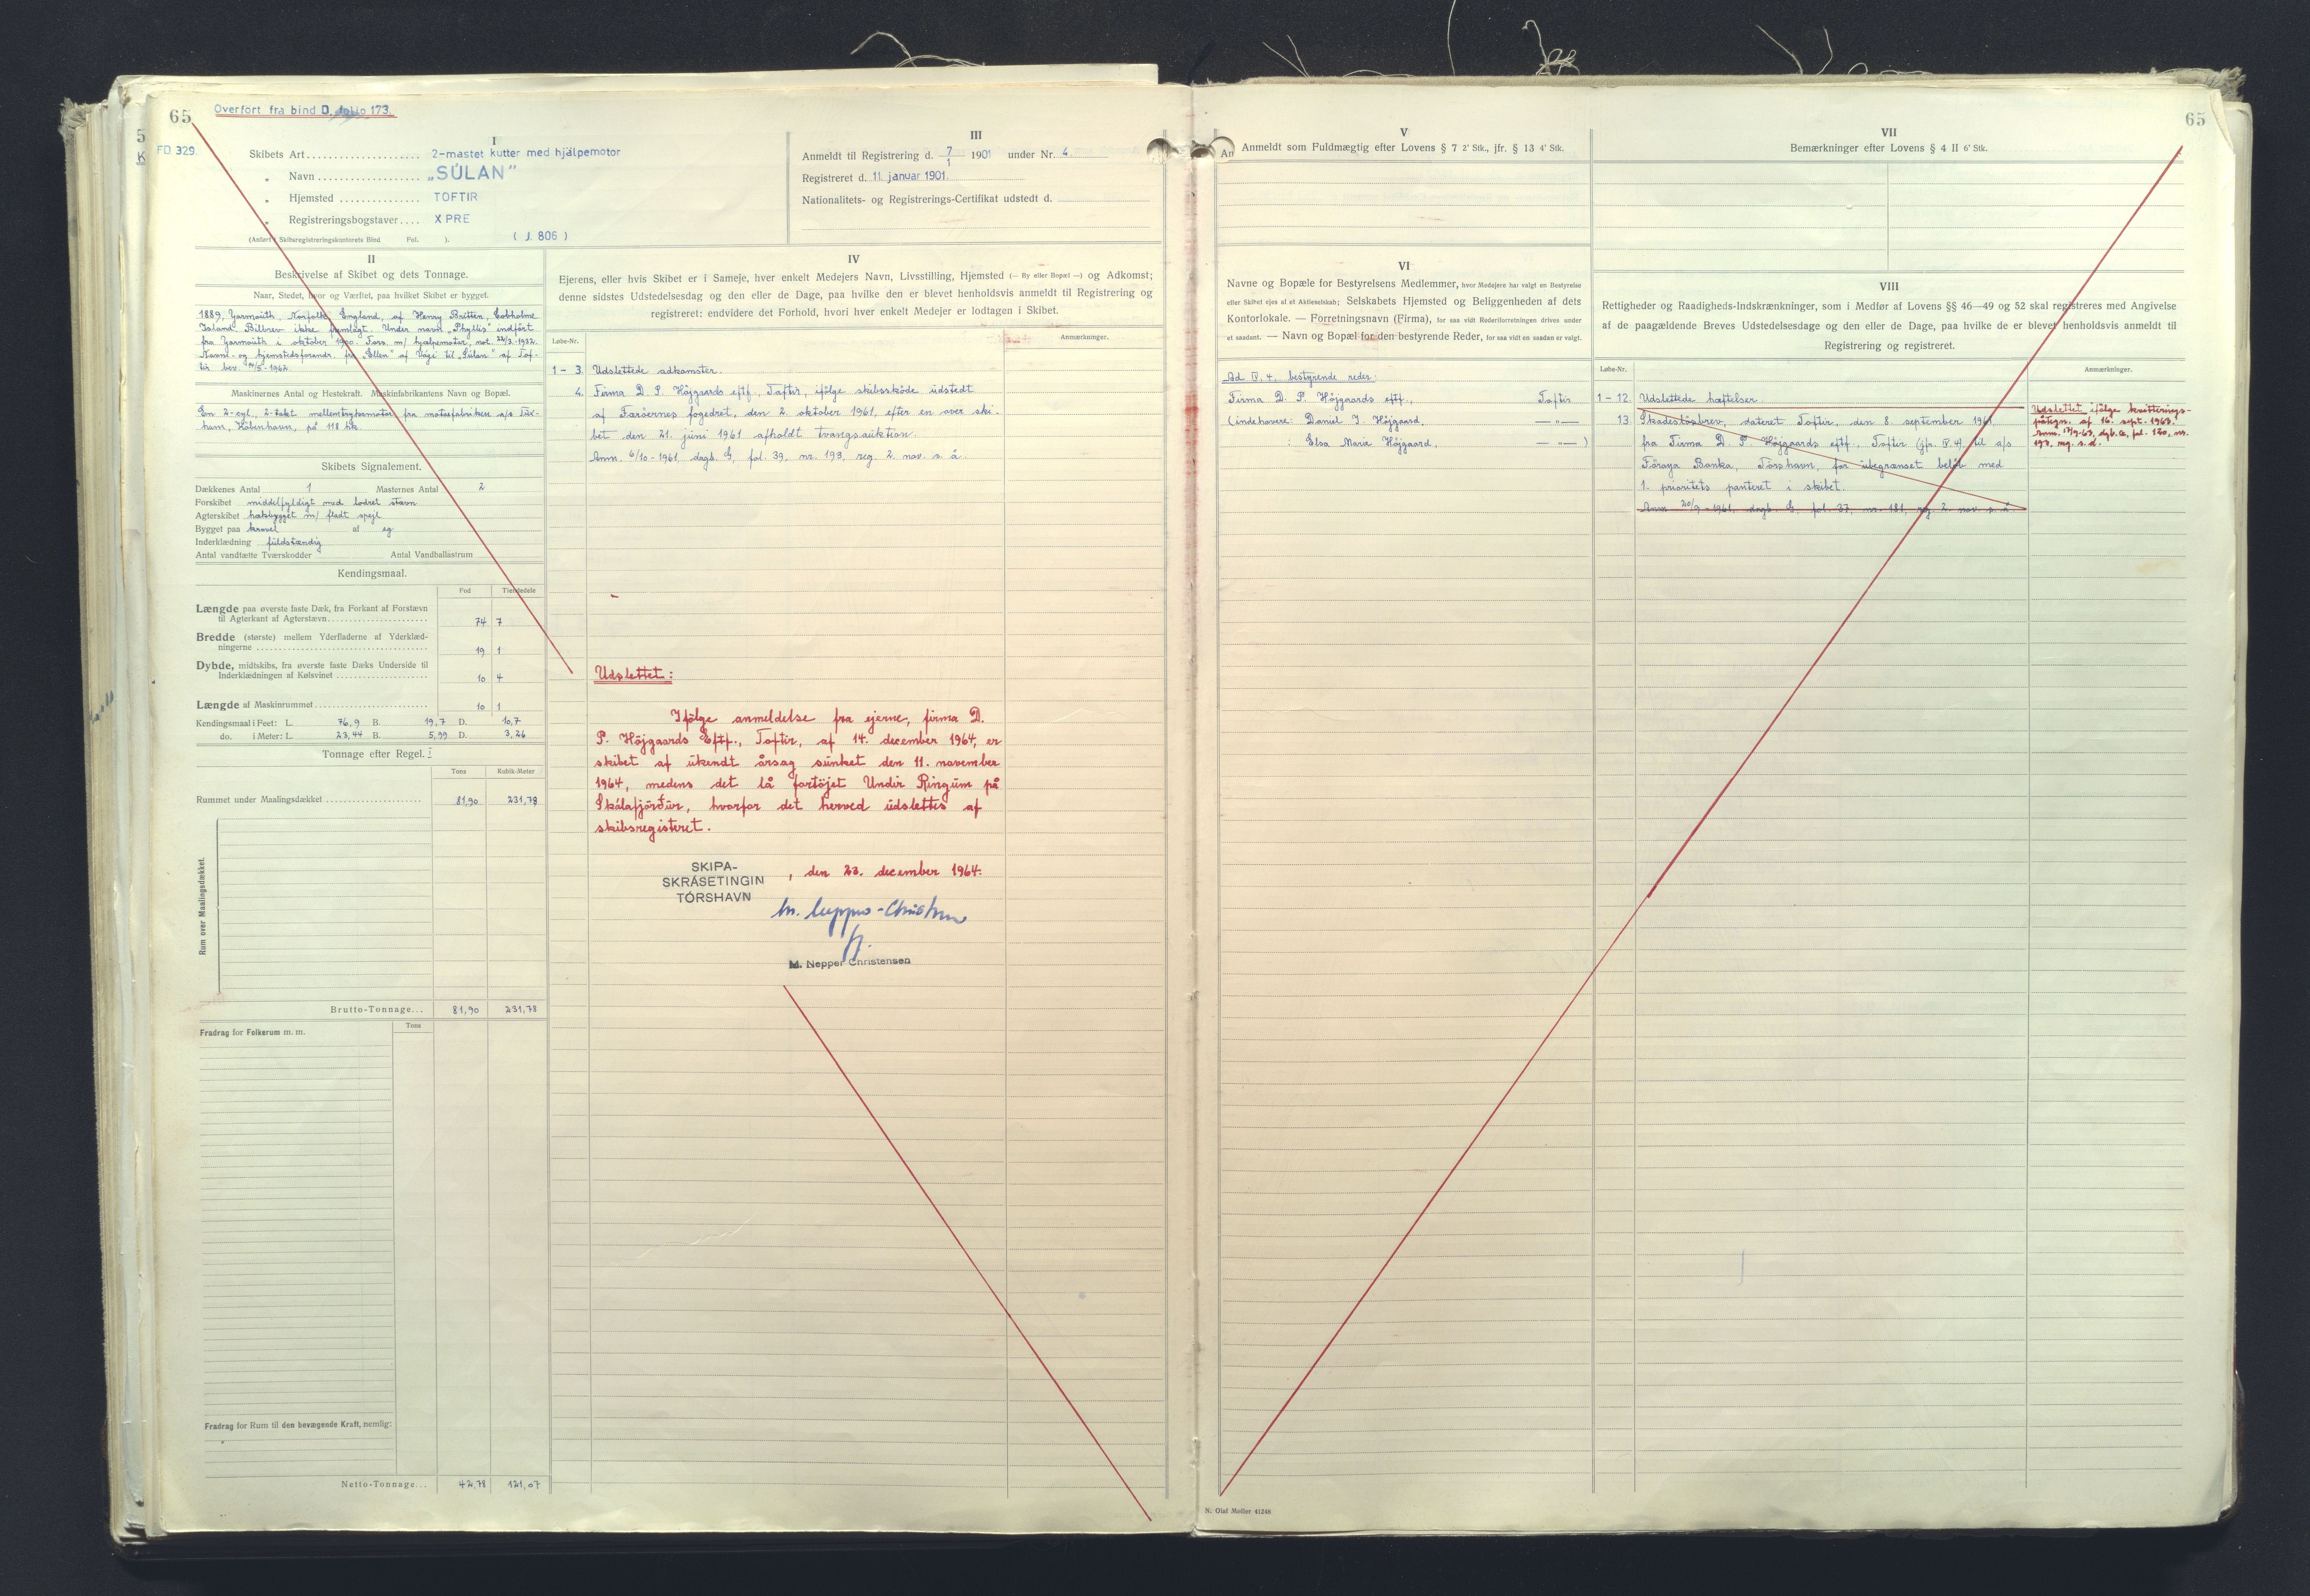 65
Overfört fra bind D. folio 173.
FD 329.
I
Skibets Art 2-mastet kutter med hjälpemotor
" Navn „SÚLAN"
" Hjemsted TOFTIR
" Registreringsbogstaver XPRE
(Anført i Skibsregistreringskontorets Bind Fol. ). (J. 806)
III
Anmeldt til Registrering d. 7/1 1901 under Nr. 4.
Registreret d. 11. januar 1901.
Nationalitets- og Registrerings-Certifikat udstedt d.
II
Beskrivelse af Skibet og dets Tonnage.
Naar, Stedet, hvor og Værftet, paa hvilket Skibet er bygget.
1889, Yarmouth, Norfolk, England, af Henry Britten, Cobholme
Island. Bilbrev ikke fremlagt. Under navn „Phyllis" indført
fra Yarmouth i oktober 1900. Fors. m/ hjælpemotor, not. 22/3-1932.
Navne- og hjemstedsforandr. fra „Ellen" af Vági til „Súlan" af Tof-
tir bev. /5-1962.
Maskinernes Antal og Hestekraft. Maskinfabrikantens Navn og Bopæl.
En 2-cyl., 2-takt mellemtryksmotor, fra motorfabriken a/s Tux-
ham, København, på 118 hk.
Skibets Signalement.
Dækkenes Antal 1 Masternes Antal 2
Forskibet middelfyldigt med lodret stævn
Agterskibet hæksbygget m/ fladt spejl
Bygget paa kravel af eg
Inderklædning fuldstændig
Antal vandtætte Tværskodder Antal Vandballastrum
Kendingsmaal.
Fod Tiendedele
Længde paa øverste faste Dæk, fra Forkant af Forstævn
til Agterkant af Agterstævn 74 7
Bredde (største) mellem Yderfladerne af Yderklæd-
ningerne 19 1
Dybde, midtskibs, fra øverste faste Dæks Underside til
Inderklædningen af Kølsvinet 10 4
Længde af Maskinrummet 10 1
Kendingsmaal i Feet: L. 76,9 B. 19,7 D. 10,7
do. i Meter: L. 23,44 B. 5,99 D. 3,26
Tonnage efter Regel. I
Tons Kubik-Meter
Rummet under Maalingsdækket 81,90 231,78
Rum over Maalingsdækket.
Brutto-Tonnage... 81,90 231,78
Fradrag for Folkerum m. m. Tons
Fradrag for Rum til den bevægende Kraft, nemlig:
Netto-Tonnage... 42,78 121,07
IV
Ejerens, eller hvis Skibet er i Sameje, hver enkelt Medejers Navn, Livsstilling, Hjemsted (— By eller Bopæl —) og Adkomst;
denne sidstes Udstedelsesdag og den eller de Dage, paa hvilke den er blevet henholdsvis anmeldt til Registrering og
registreret; endvidere det Forhold, hvori hver enkelt Medejer er lodtagen i Skibet.
Løbe-Nr. Anmærkninger.
1-3. Udslettede adkomster.
4. Firma D. P. Højgaards eftf., Toftir, ifølge skibsskøde udstedt
af Færøernes fogedret, den 2. oktober 1961, efter en over ski-
bet den 21. juni 1961 afholdt tvangsauktion.
Anm. 6/10-1961, dagb. G, fol. 39, nr. 193, reg. 2. nov. s. å.
Udslettet:
Ifølge anmeldelse fra ejerne, firma D.
P. Højgaards Eftf., Toftir, af 14. december 1964, er
skibet af ukendt årsag sunket den 11. november
1964, medens det lå fortøjet Undir Ringum på
Skálafjørður, hvorfor det herved udslettes af
skibsregisteret.
SKIPA-
SKRÁSETINGIN
TÓRSHAVN
, den 23. december 1964.
M. Nepper-Christensen
M. Nepper Christensen
65
An
V
Anmeldt som Fuldmægtig efter Lovens § 7 2' Stk., jfr. § 13 4' Stk.
VII
Bemærkninger efter Lovens § 4 II 6' Stk.
VI
Navne og Bopæle for Bestyrelsens Medlemmer, hvor Medejere har valgt en Bestyrelse
eller Skibet ejes af et Aktieselskab; Selskabets Hjemsted og Beliggenheden af dets
Kontorlokale. — Forretningsnavn (Firma), for saa vidt Rederiforretningen drives under
et saadant. — Navn og Bopæl for den bestyrende Reder, for saa vidt en saadan er valgt.
Ad IV. 4, bestyrende reder:
Firma D. P. Højgaards eftf., Toftir
(indehavere: Daniel J. Højgaard, — " —
: Elsa Maria Højgaard, — " — )
VIII
Rettigheder og Raadigheds-Indskrænkninger, som i Medfør af Lovens §§ 46—49 og 52 skal registreres med Angivelse
af de paagældende Breves Udstedelsesdage og den eller de Dage, paa hvilke de er blevet henholdsvis anmeldt til
Registrering og registreret.
Løbe-Nr. Anmærkninger.
1-12. Udslettede hæftelser.
13. Skadesløsbrev, dateret Toftir, den 8. september 1961,
fra Firma D. P. Højgaards eftf., Toftir (jfr. IV. 4) til a/s
Föroya Banka, Tórshavn, for ubegrænset beløb med
1. prioritets panteret i skibet.
Anm. 20/9-1961, dagb. G, fol. 37, nr. 181, reg. 2. nov. s. å.
Udslettet ifølge kvitterings-
påtegn. af 16. sept. 1963.
anm. 17/9-63, dgb. G, fol. 120, nr.
193, reg. s. d.
N. Olaf Møller 41248